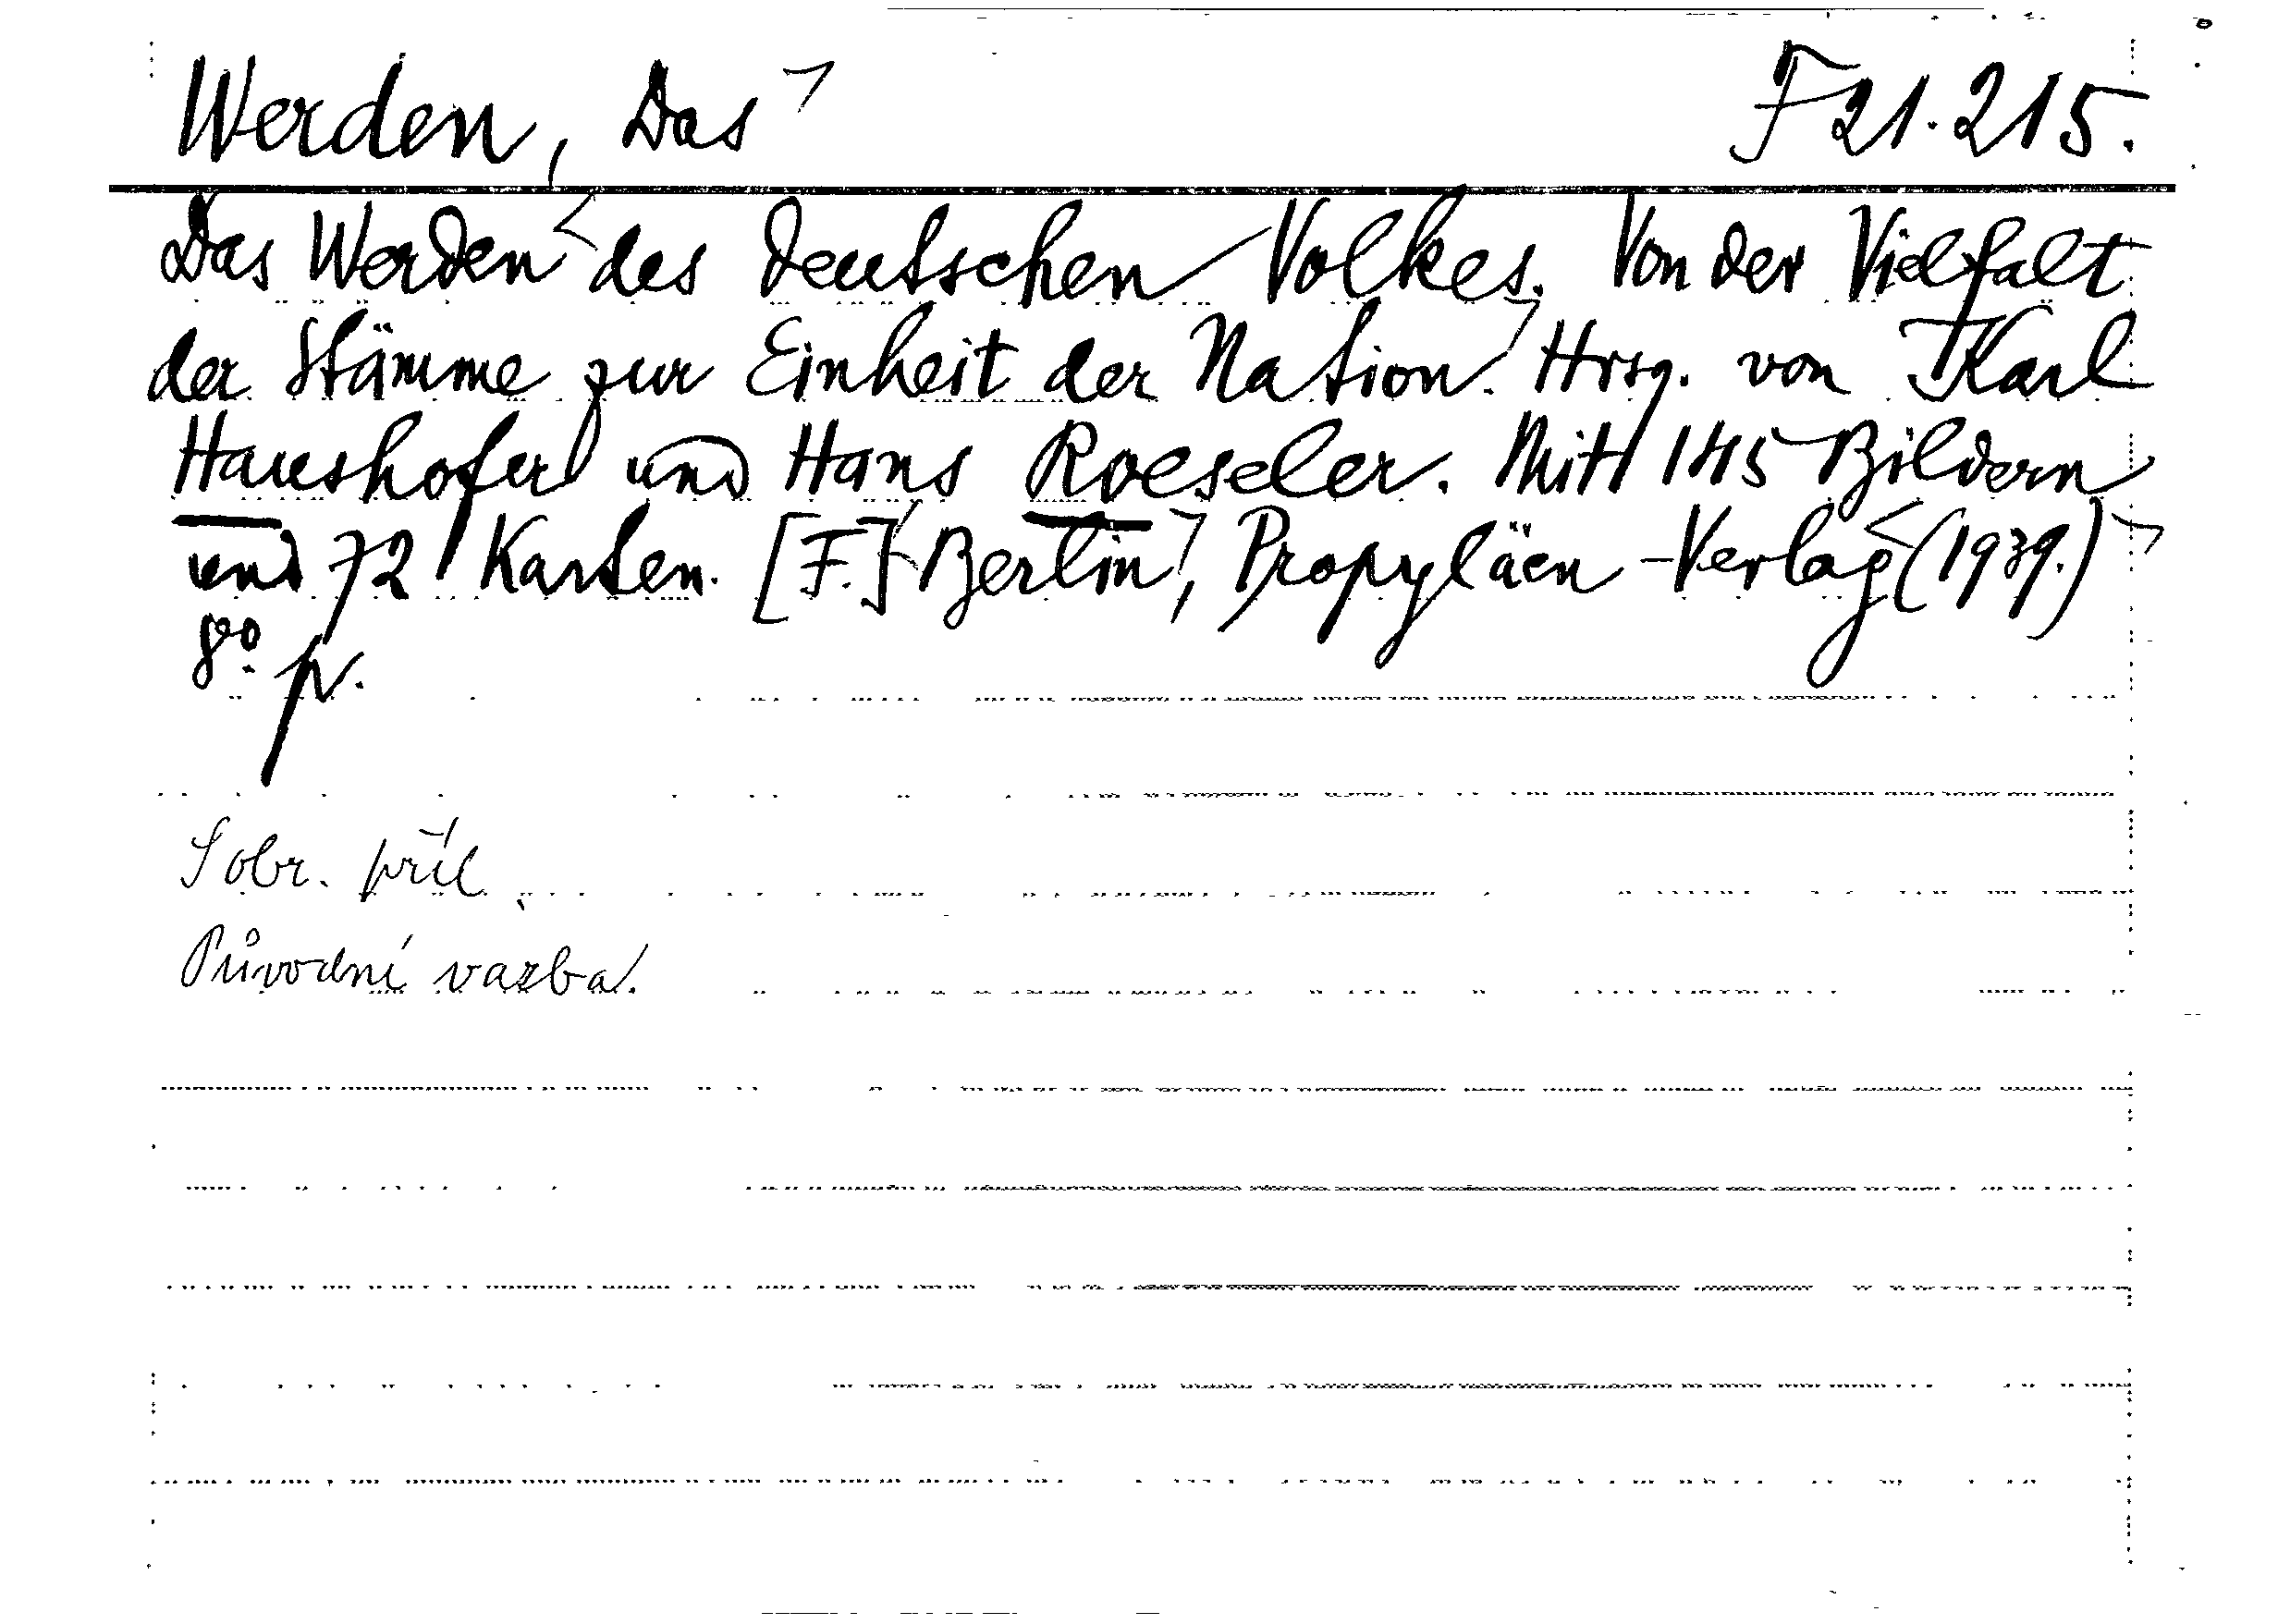 Werden, Das F 21.215.
Das Werden des deutschen Volkes. Von der Vielfalt
der Stämme zur Einheit der Nation. Hrsg. von Karl
Haushofer und Hans Roeseler. Mit 145 Bildern
und 72 Karten. [F.] Berlin, Propyläen-Verlag (1939.)
8° p.
S obr. příl.
Původní vazba.